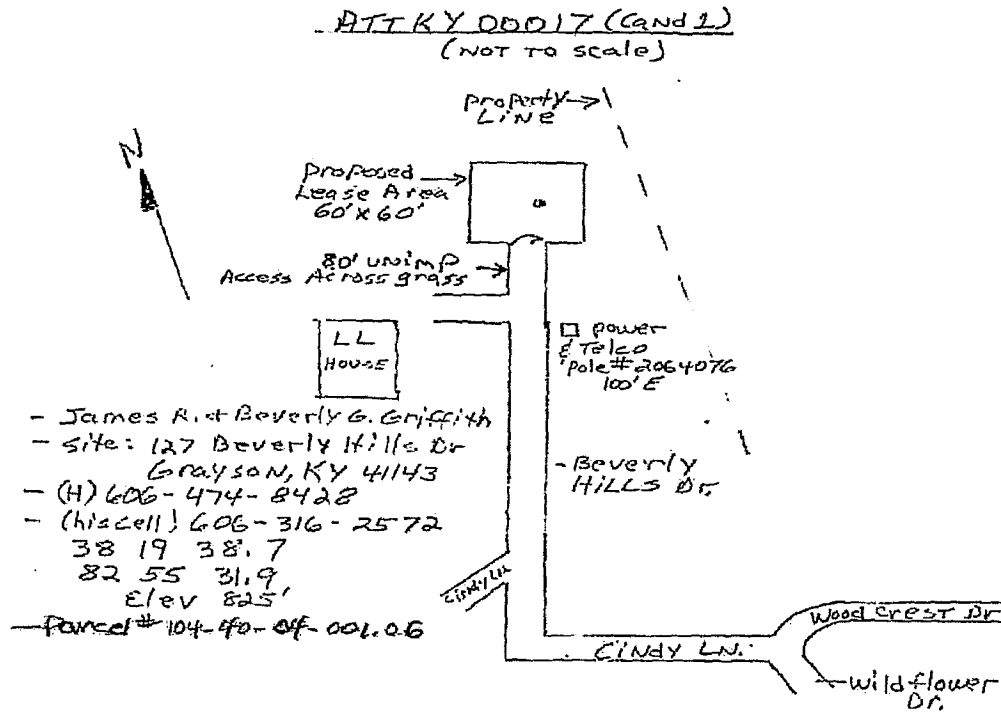 ATT KY 00017 (Cand 1)
(NOT TO scale)
Property
LINE
N
Proposed
Lease Area
60' x 60'
80' UNIMP
Access Across grass
LL
HOUSE
power
& Telco
Pole # 2064076
100' E
- James R. & Beverly G. Griffith
- Site: 127 Beverly Hills Dr
Grayson, KY 41143
- (H) 606-474-8428
- (his cell) 606-316-2572
38 19 38.7
82 55 31.9
Elev 825'
- Parcel # 104-40-04-001.06
- Beverly
HILLS Dr.
Cindy Ln
CINDY LN.
Wood Crest Dr
Wildflower
Dr.